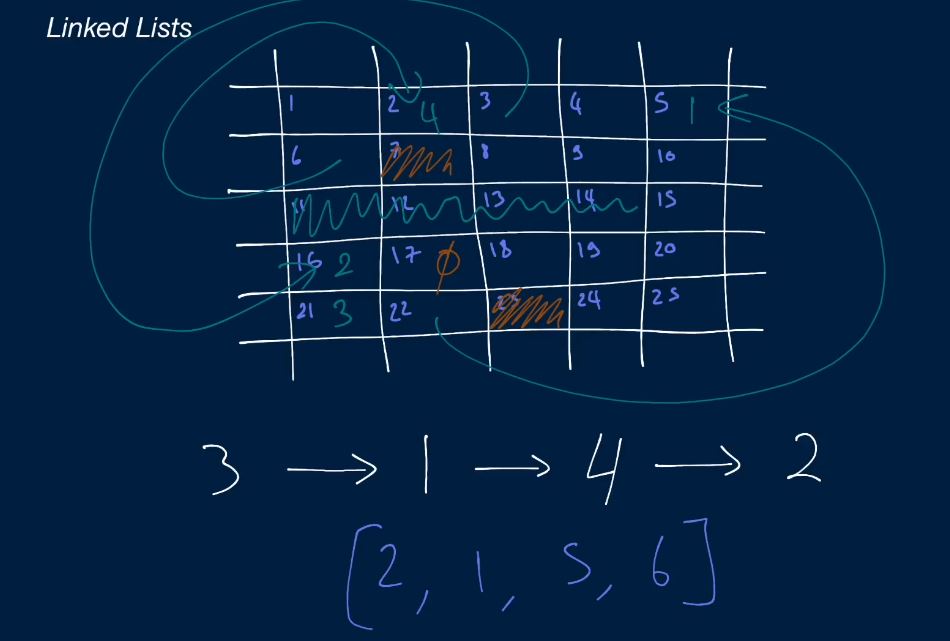 Linked Lists
1 2 4 3 4 5 1
6 7 8 9 10
11 12 13 14 15
16 2 17 ϕ 18 19 20
21 3 22 23 24 25
3 → 1 → 4 → 2
[2, 1, 5, 6]